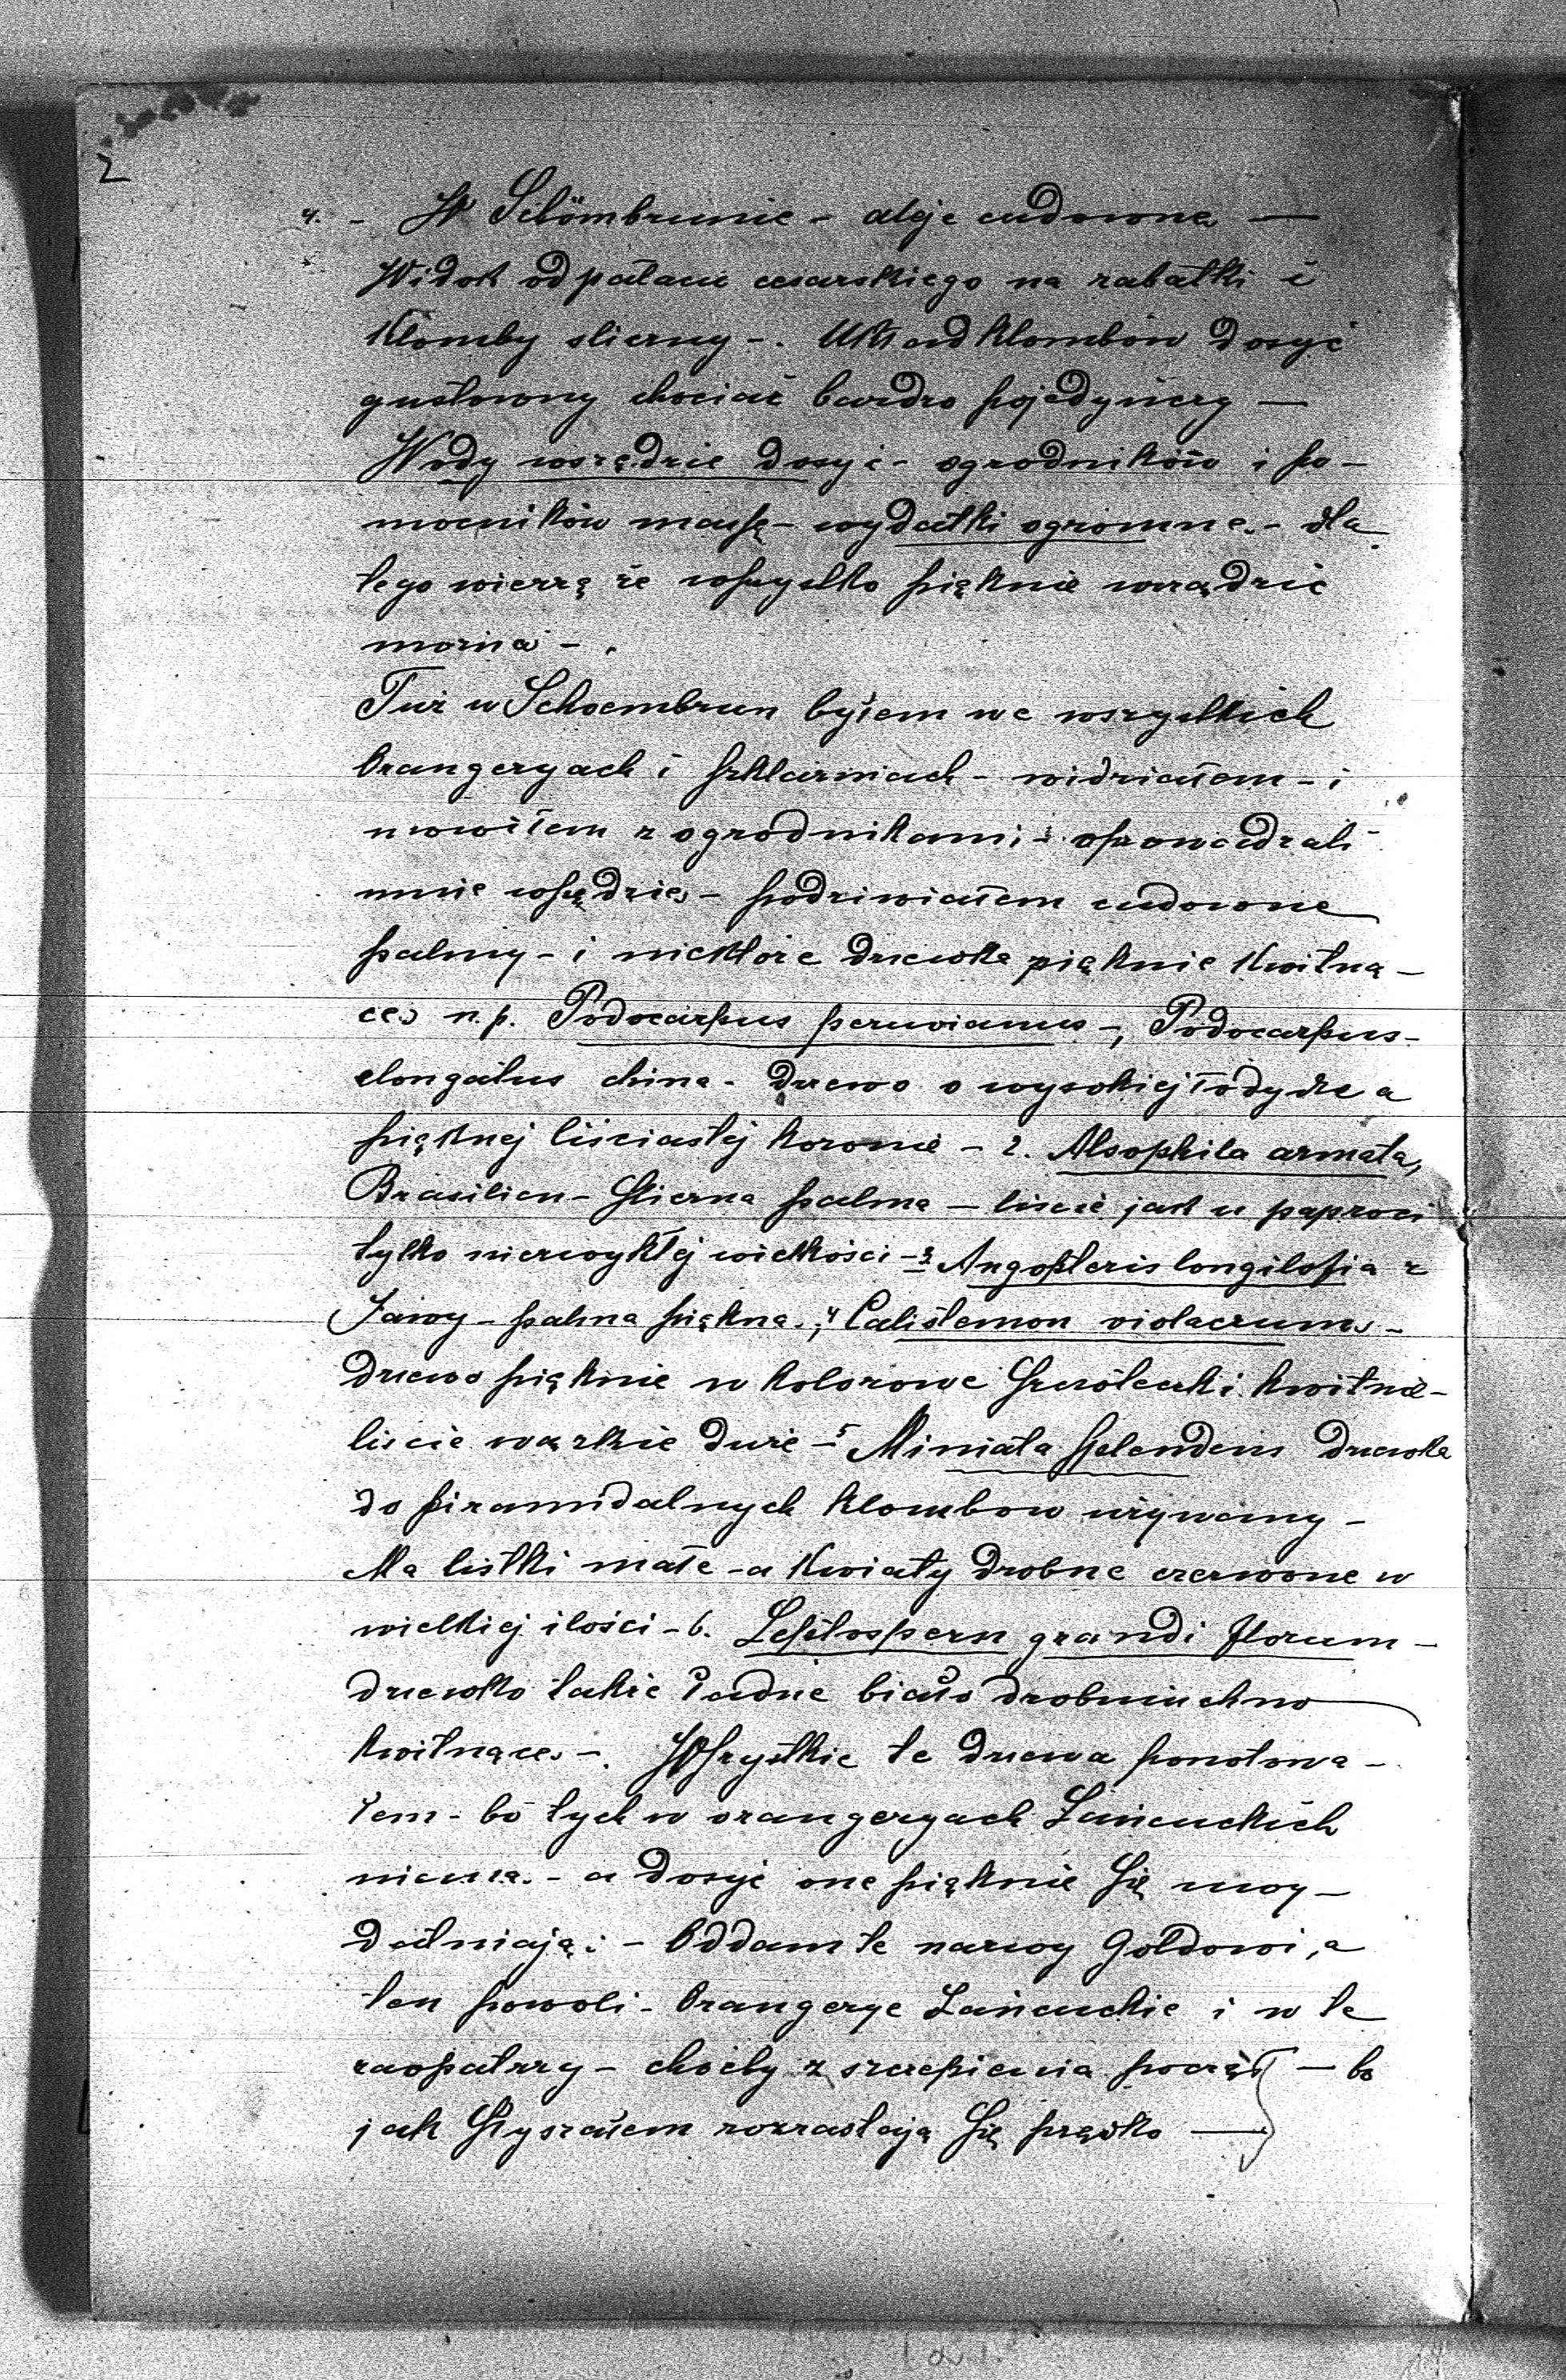 2
4. - W Schömbrunie - aleje cudowne —
Widok od pałacu cesarskiego na rabatki i
Klomby sliczny -. Układ klombów dosyć
gustowny chociaż bardzo pojedyńczy —
Wody wszędzie dosyć - ogrodników i po-
mocników masę - wydatki ogromne - dla
tego wierzę że wszystko pięknie urządzić
można - .
Tuż w Schoembrun byłem we wszystkich
Orangeryach i szklarniach - widziałem - i
mowiłem z ogrodnikami - oprowadzali
mnie wszędzie - podziwiałem cudowne
palmy - i niektóre drzewka pięknie Kwitną-
ce n.p. Podocarpus peruvianus -, Podocarpus-
elongatus china - drzewo o wysokiej łodydze a
pięknej liściastej koronie - 2. Alsophila armata,
Brasilien - śliczna palma - liscie jak u paproci
tylko niezwykłej wielkości - 3 Angopteris longilofia z
Jawy - palma piękna -, 4 Calistemon violaceum -
drzewo pięknie w kolorowe kwitnie -
liscie wązkie duże - 5 Miniata splendens drzewka
do piramidalnych klombow używany -
Ma listki małe - a Kwiaty drobne czerwone w
wielkiej ilości - 6. Leptospern grandi florum -
drzewko także ładne biało drobniuchno
kwitnące -. Wszystkie te drzewa ponotowa-
łem - bo tych w orangeryach Łańcuckich
niema - a dosyć one pięknie się uwy-
datniają: - Oddam te nazwy Goldowi, a
ten powoli - Orangerye Łańcuckie i w te
zaopatrzy - choćby z szczepienia począł — bo
jak słyszałem rozrastają się prędko —